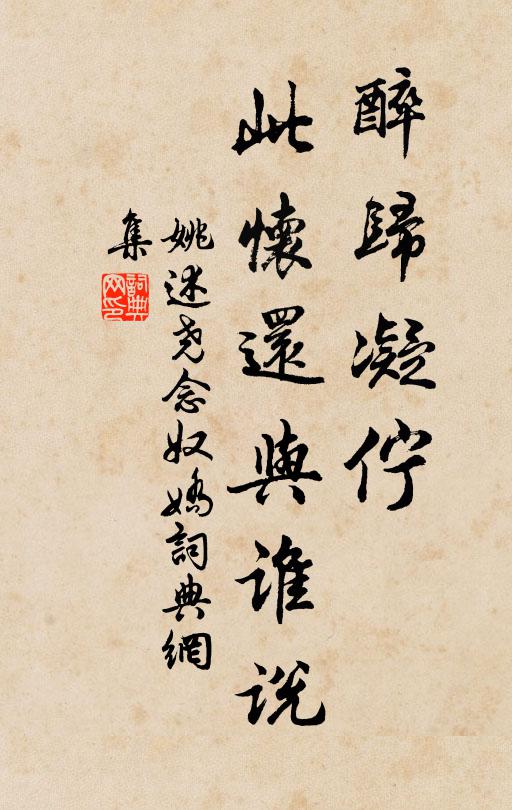 醉歸凝佇
此懷還與谁説
姚述尧念奴嬌詞典網
集
詞典
网印